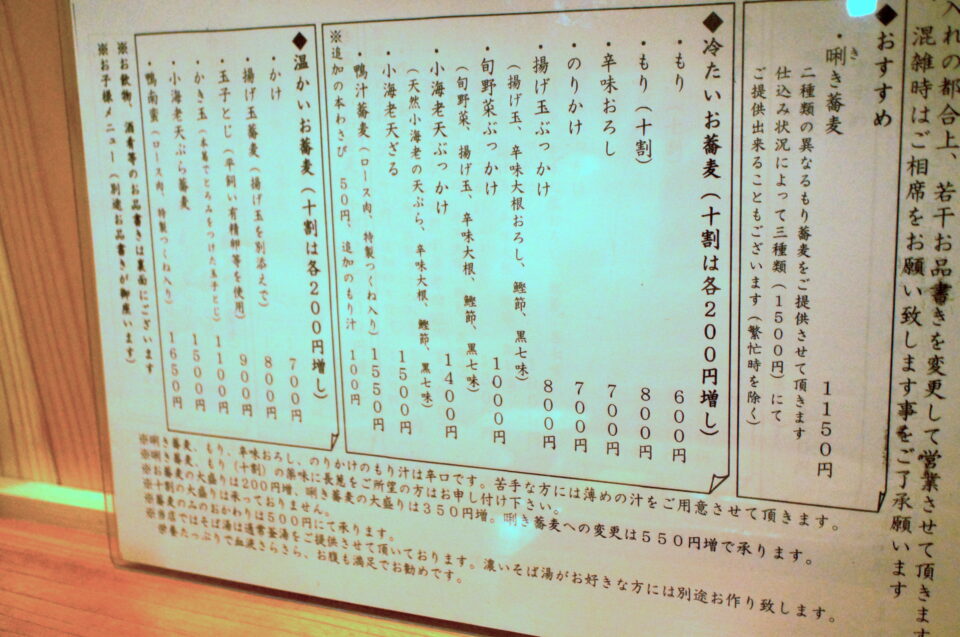 入れの都合上、若干お品書きを変更して営業させて頂きます
混雑時はご相席をお願い致します事をご了承願います
◆おすすめ
・唎き蕎麦 1150円
き
二種類の異なるもり蕎麦をご提供させて頂きます
仕込み状況によって三種類(1500円)にて
ご提供出来ることもございます(繁忙時を除く)
◆冷たいお蕎麦(十割は各200円増し)
・もり 600円
・もり(十割) 800円
・辛味おろし 700円
・のりかけ 700円
・揚げ玉ぶっかけ 800円
(揚げ玉、辛味大根おろし、鰹節、黒七味)
・旬野菜ぶっかけ 1000円
(旬野菜、揚げ玉、辛味大根、鰹節、黒七味)
・小海老天ぶっかけ 1400円
(天然小海老の天ぷら、辛味大根、鰹節、黒七味)
・小海老天ざる 1500円
・鴨汁蕎麦(ロース肉、特製つくね入り) 1550円
※追加の本わさび 50円、追加のもり汁 100円
◆温かいお蕎麦(十割は各200円増し)
・かけ 700円
・揚げ玉蕎麦(揚げ玉を別添えで) 800円
・玉子とじ(平飼い有精卵等を使用) 900円
・かき玉(本葛でとろみをつけた玉子とじ) 1100円
・小海老天ぷら蕎麦 1500円
・鴨南蛮(ロース肉、特製つくね入り) 1650円
※お飲物、酒肴等のお品書きは裏面にございます
※お子様メニュー(別途お品書きが御座います)
※唎き蕎麦、もり、辛味おろし、のりかけのもり汁は辛口です。苦手な方には薄めの汁をご用意させて頂きます。
※唎き蕎麦、もり(十割)の薬味に長葱をご所望の方はお申し付け下さい。
※お蕎麦の大盛りは200円増、唎き蕎麦の大盛りは350円増。唎き蕎麦への変更は550円増で承ります。
※十割の大盛りは承っておりません。
※蕎麦のみのおかわりは500円にて承ります。
※当店ではそば湯は通常釜湯をご提供させて頂いております。濃いそば湯がお好きな方には別途お作り致します。
栄養たっぷりで血液さらさら、お腹も満足でお勧めです。